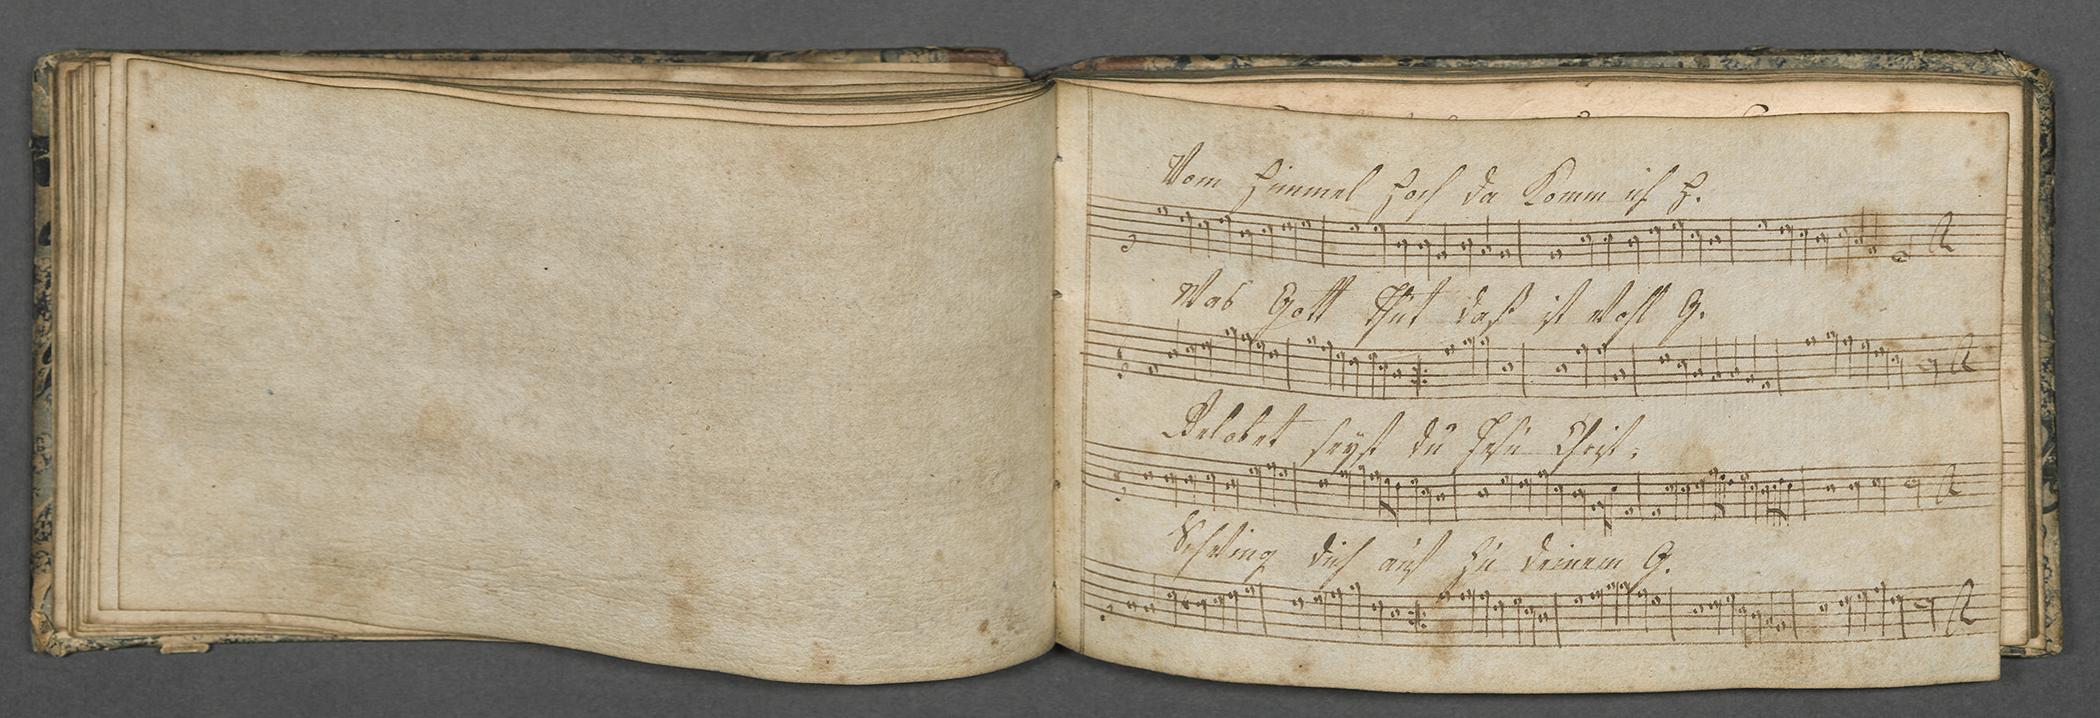 Vom Himmel hoch da Komm ich H.
Was Gott Thut daß ist wohl G.
Gelobet seyst du Jesu Christ,
Schwing dich auf zu deinem G.